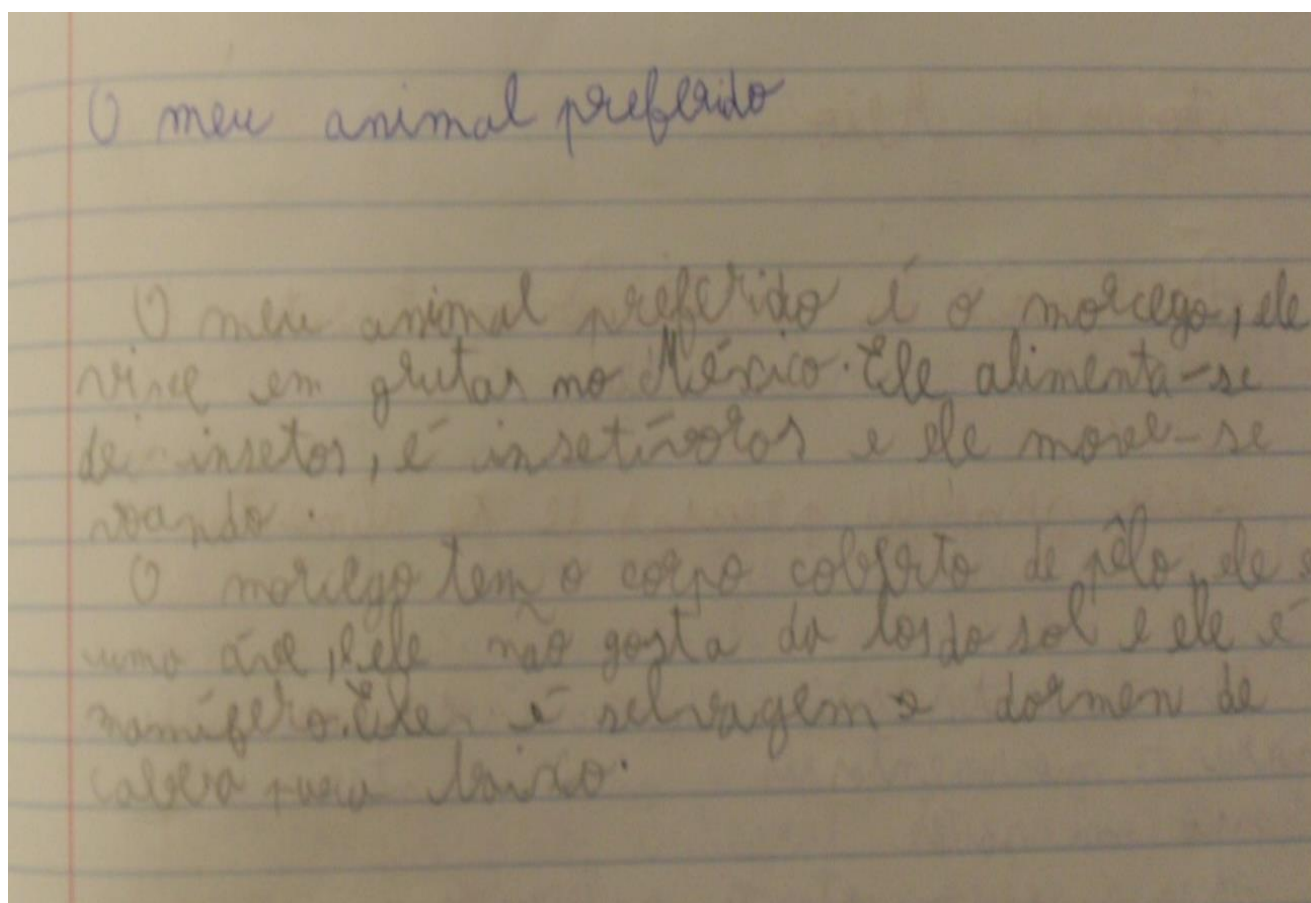 O meu animal preferido
O meu animal preferido é o morcego, ele
vive em grutas no México. Ele alimenta-se
de insetos, é insetívoros e ele move-se
voando.
O morcego tem o corpo coberto de pêlo, ele é
uma áve, ele não gosta da los do sol e ele é
mamífero. Ele é selvagem e dormen de
cabeça para baixo.